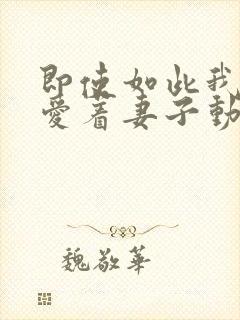 即使如此我
愛着妻子動
魏敬華